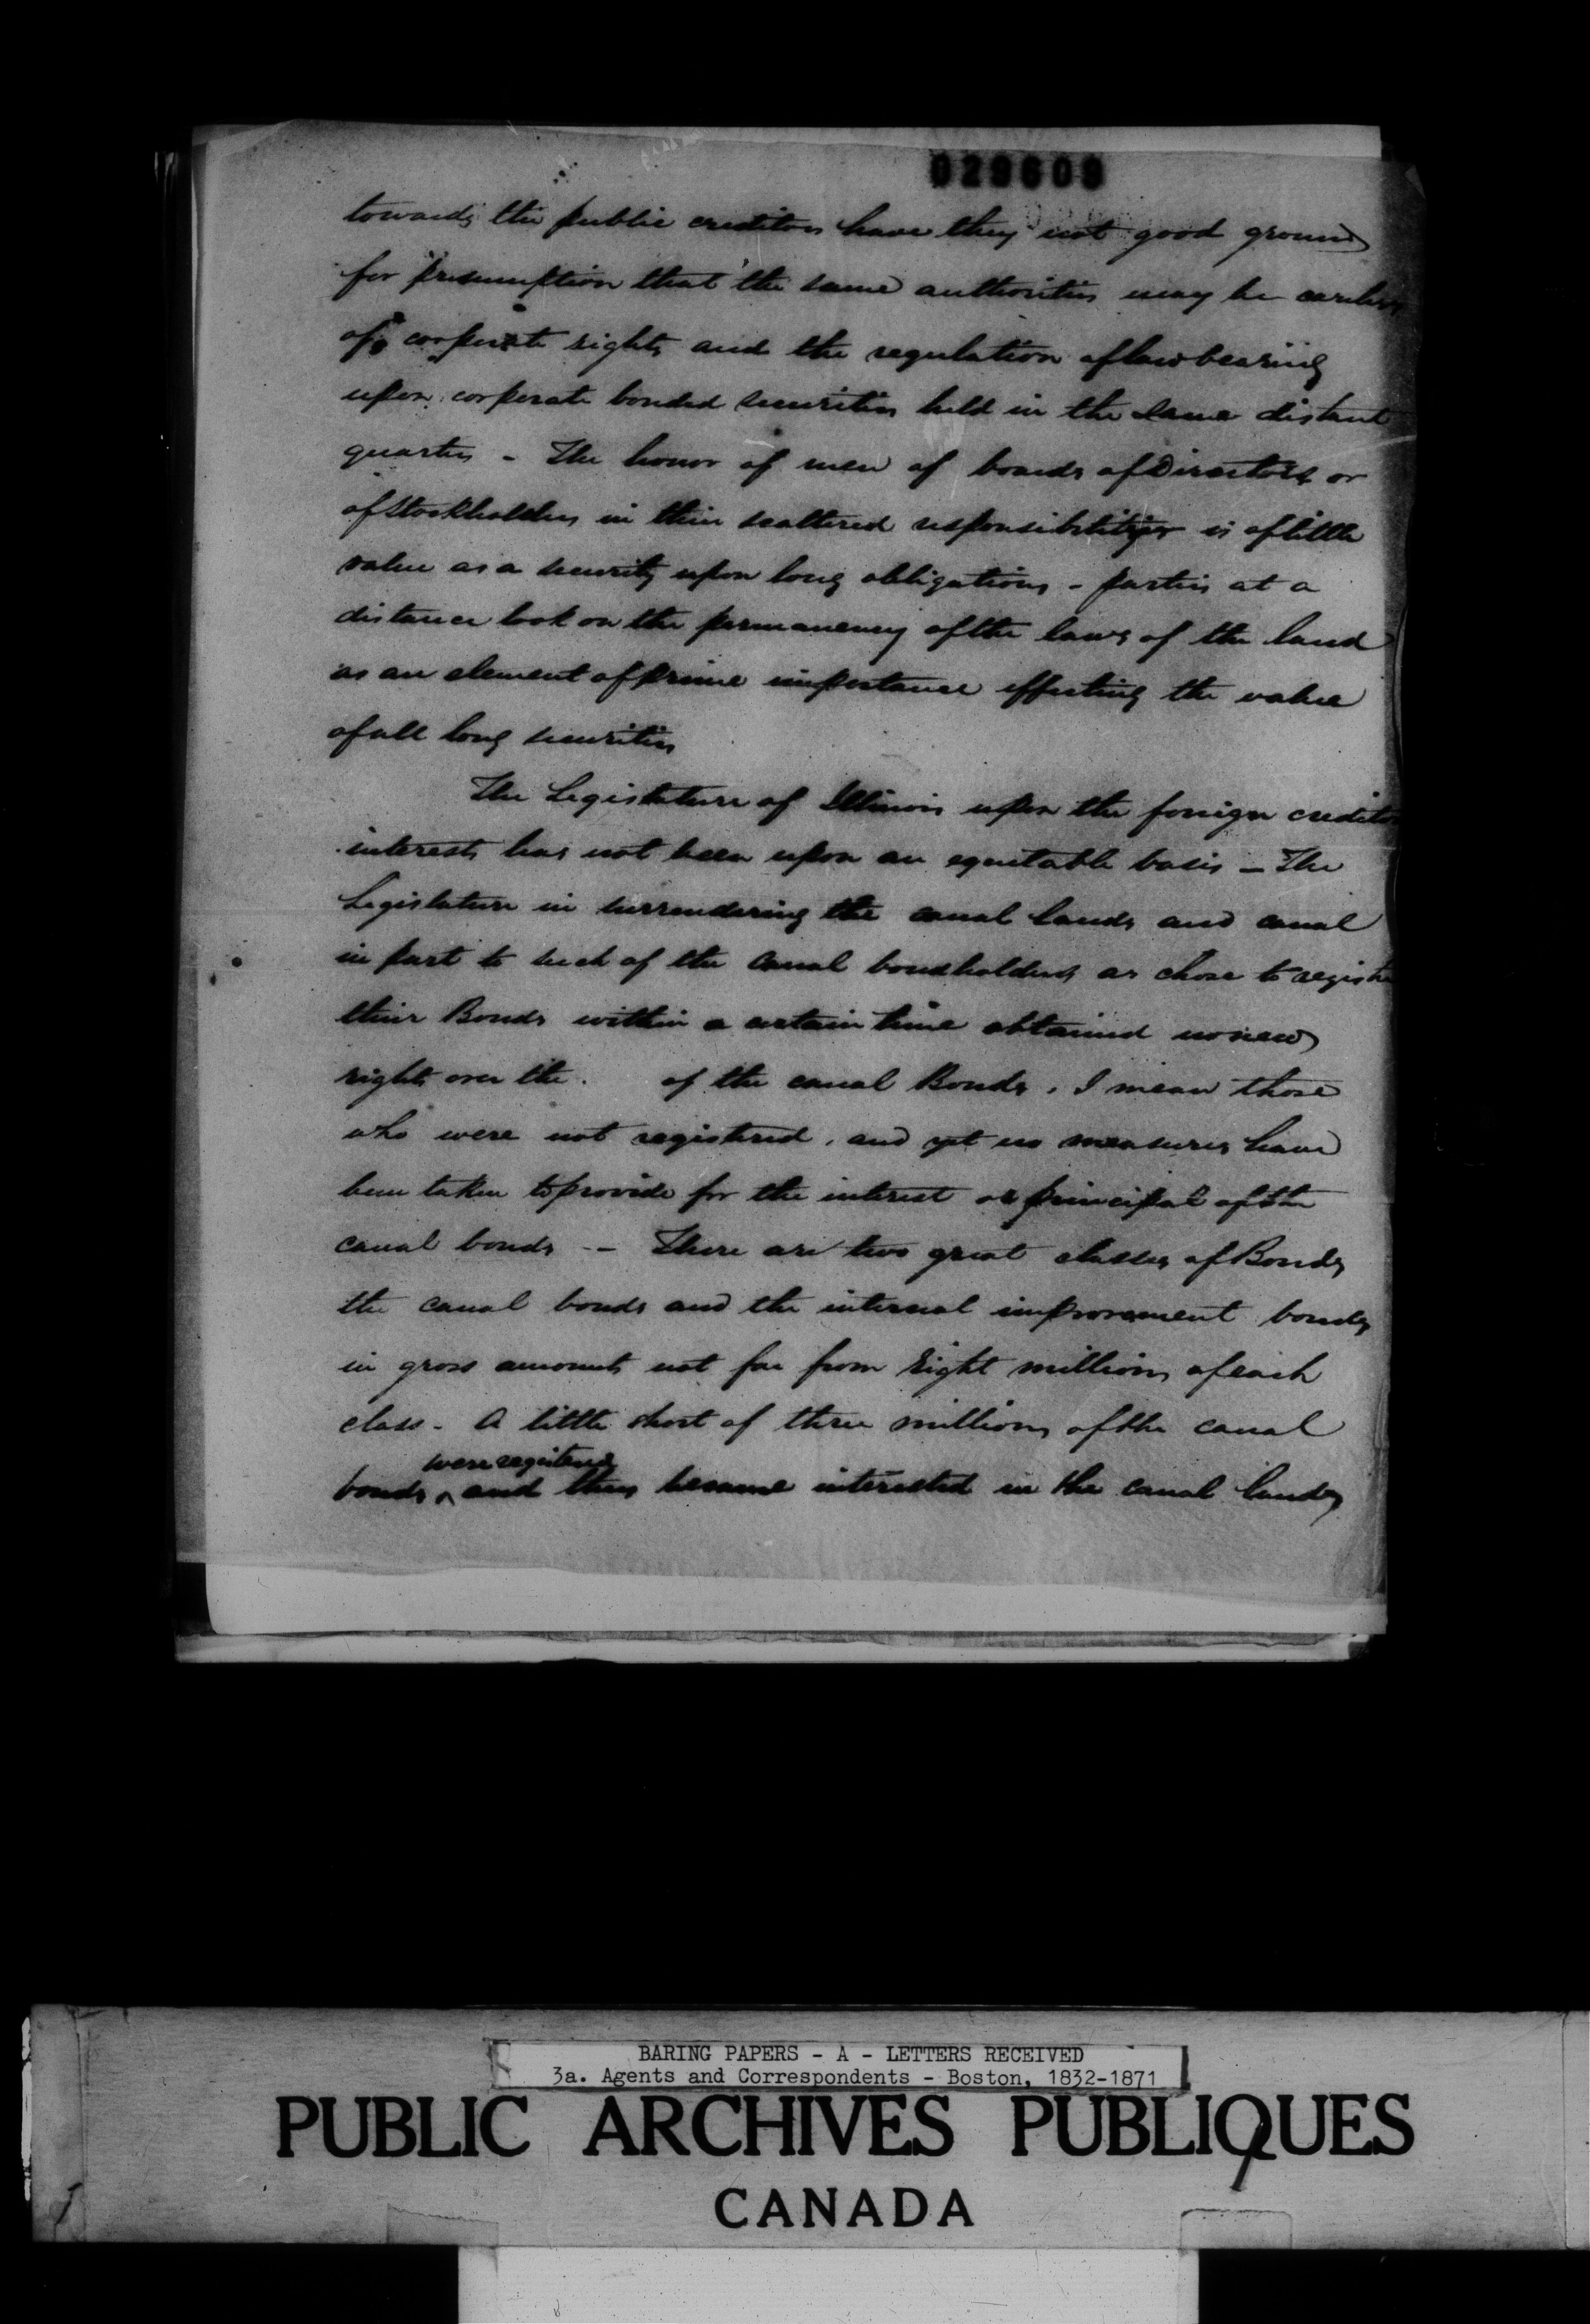 029609
towards the public creditors have they not good ground
for presumption that the same authorities may be careless
of corporate rights and the regulation of law bearing
upon corporate bonded securities held in the same distant
quarters - The honor of men of boards of Directors or
of stockholders in their scattered responsibilities is of little
value as a security upon long obligations - parties at a
distance look on the permanency of the laws of the land
as an element of prime importance effecting the value
of all long securities
The Legislature of Illinois upon the foreign creditor
interests has not been upon an equitable basis - The
Legislature in surrendering the canal lands and canal
in part to such of the canal bondholders as chose to register
their Bonds within a certain time obtained no new
rights over the. of the canal Bonds, I mean those
who were not registered, and yet no measures have
been taken to provide for the interest or principal of the
canal bonds -- There are two great classes of Bonds
the canal bonds and the internal improvement bonds
in gross amounts not far from Eight millions of each
class - A little short of three millions of the canal
were registered
bonds ^ and thus became interested in the canal lands
BARING PAPERS - A - LETTERS RECEIVED
3a. Agents and Correspondents - Boston, 1832-1871
PUBLIC ARCHIVES PUBLIQUES
CANADA